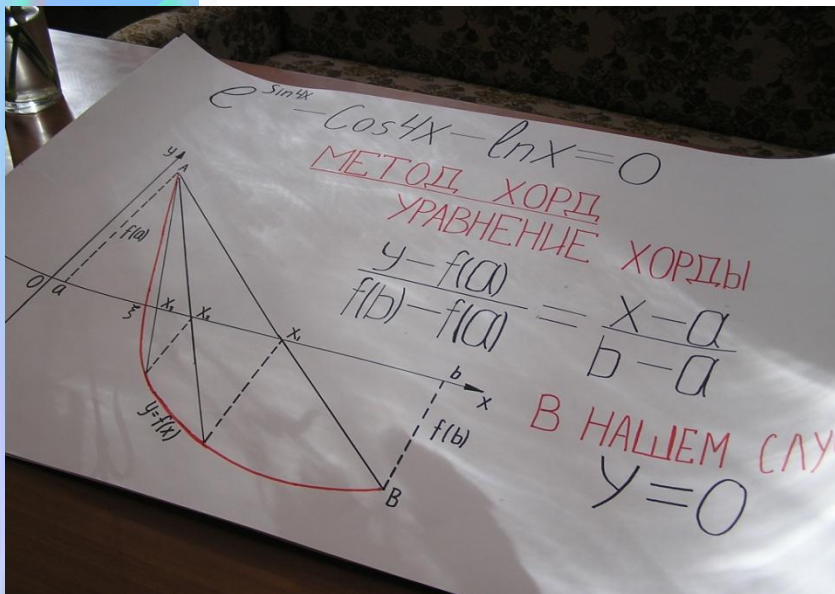 e^sin4x - Cos4x - lnx = 0
МЕТОД ХОРД
УРАВНЕНИЕ ХОРДЫ
y-f(a) / f(b)-f(a) = x-a / b-a
В НАШЕМ
y=0
y
A
f(a)
O a
ξ x₃ x₂ x₁ b x
y=f(x)
f(b)
B